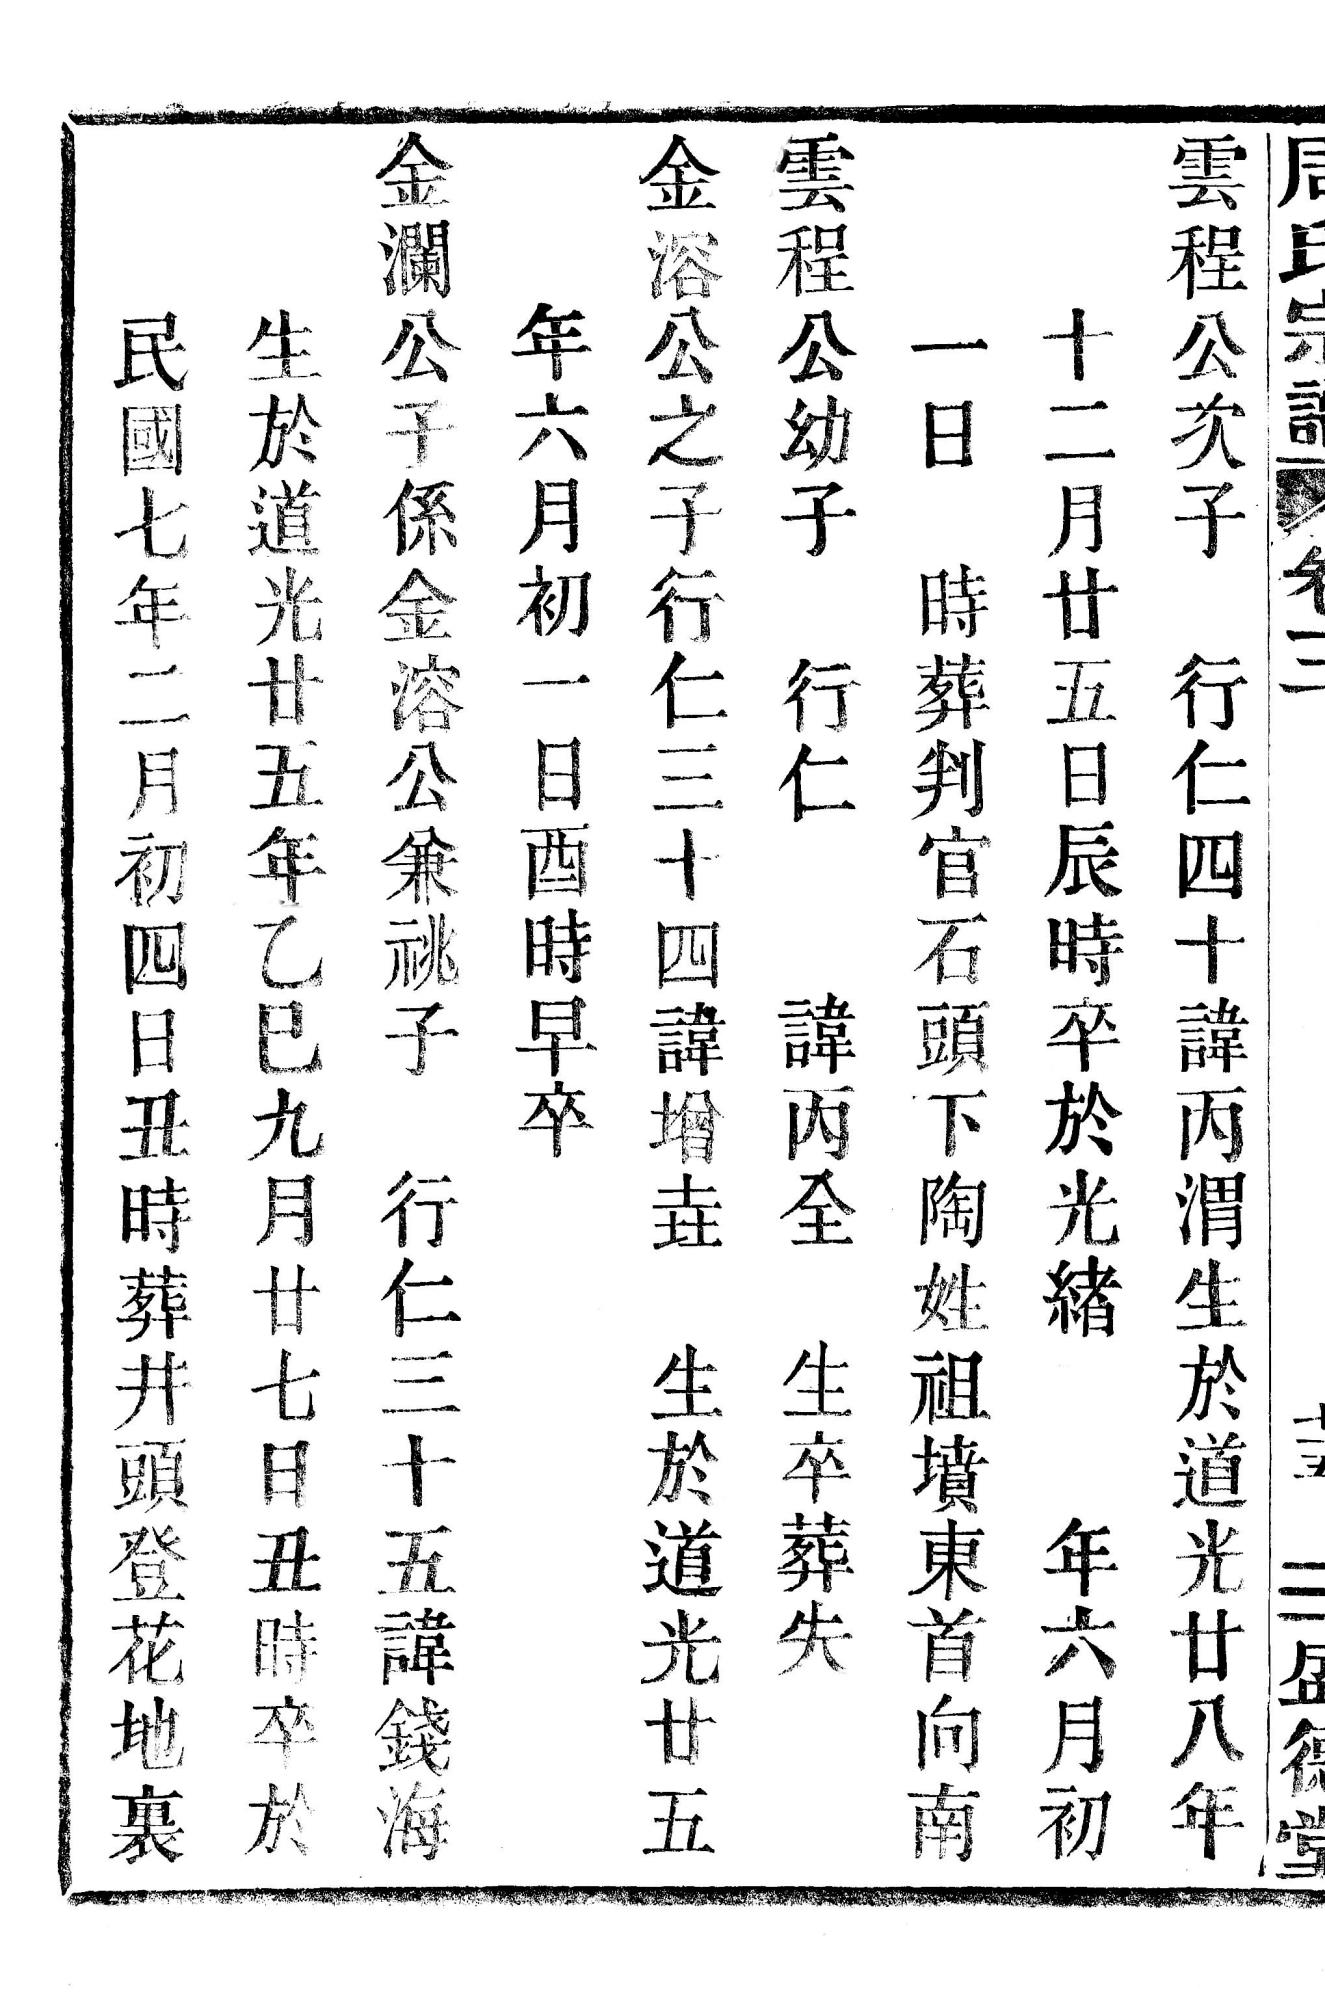 周氏宗譜 卷三 三盛德堂
雲程公次子 行仁四十諱丙渭生於道光廿八年
十二月廿五日辰時卒於光緒 年六月初
一日 時葬判官石頭下陶姓祖墳東首向南
雲程公幼子 行仁 諱丙全 生卒葬失
金溶公之子行仁三十四諱增垚 生於道光廿五
年六月初一日酉時早卒
金瀾公子係金溶公兼祧子 行仁三十五諱錢海
生於道光廿五年乙巳九月廿七日丑時卒於
民國七年二月初四日丑時葬井頭登花地裏